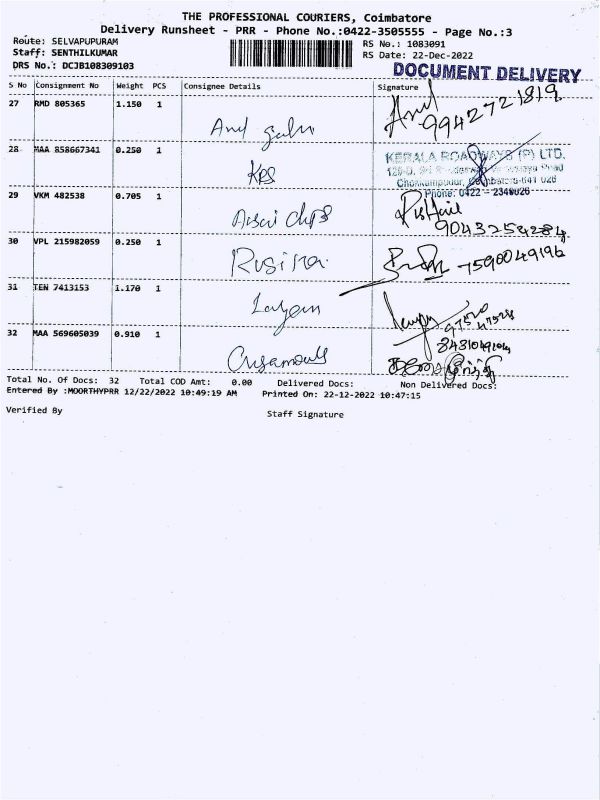 THE PROFESSIONAL COURIERS, Coimbatore
Delivery Runsheet - PRR - Phone No.:0422-3505555 - Page No.:3
Route: SELVAPUPURAM
RS No.: 1083091
Staff: SENTHILKUMAR
RS Date: 22-Dec-2022
DRS No.: DCJB108309103
DOCUMENT DELIVERY
S No Consignment No Weight PCS Consignee Details Signature
27 RMD 805365 1.150 1
9942721819
28 MAA 858667341 0.250 1 KPS
KERALA ROADWAYS (P) LTD.
Phone: 0422 - 2348026
29 VKM 482538 0.705 1
9043254284
30 VPL 215982059 0.250 1
7590049196
31 TEN 7413153 1.170 1
32 MAA 569605039 0.910 1
Total No. Of Docs: 32 Total COD Amt: 0.00 Delivered Docs: Non Delivered Docs:
Entered By :MOORTHYPRR 12/22/2022 10:49:19 AM Printed On: 22-12-2022 10:47:15
Verified By
Staff Signature